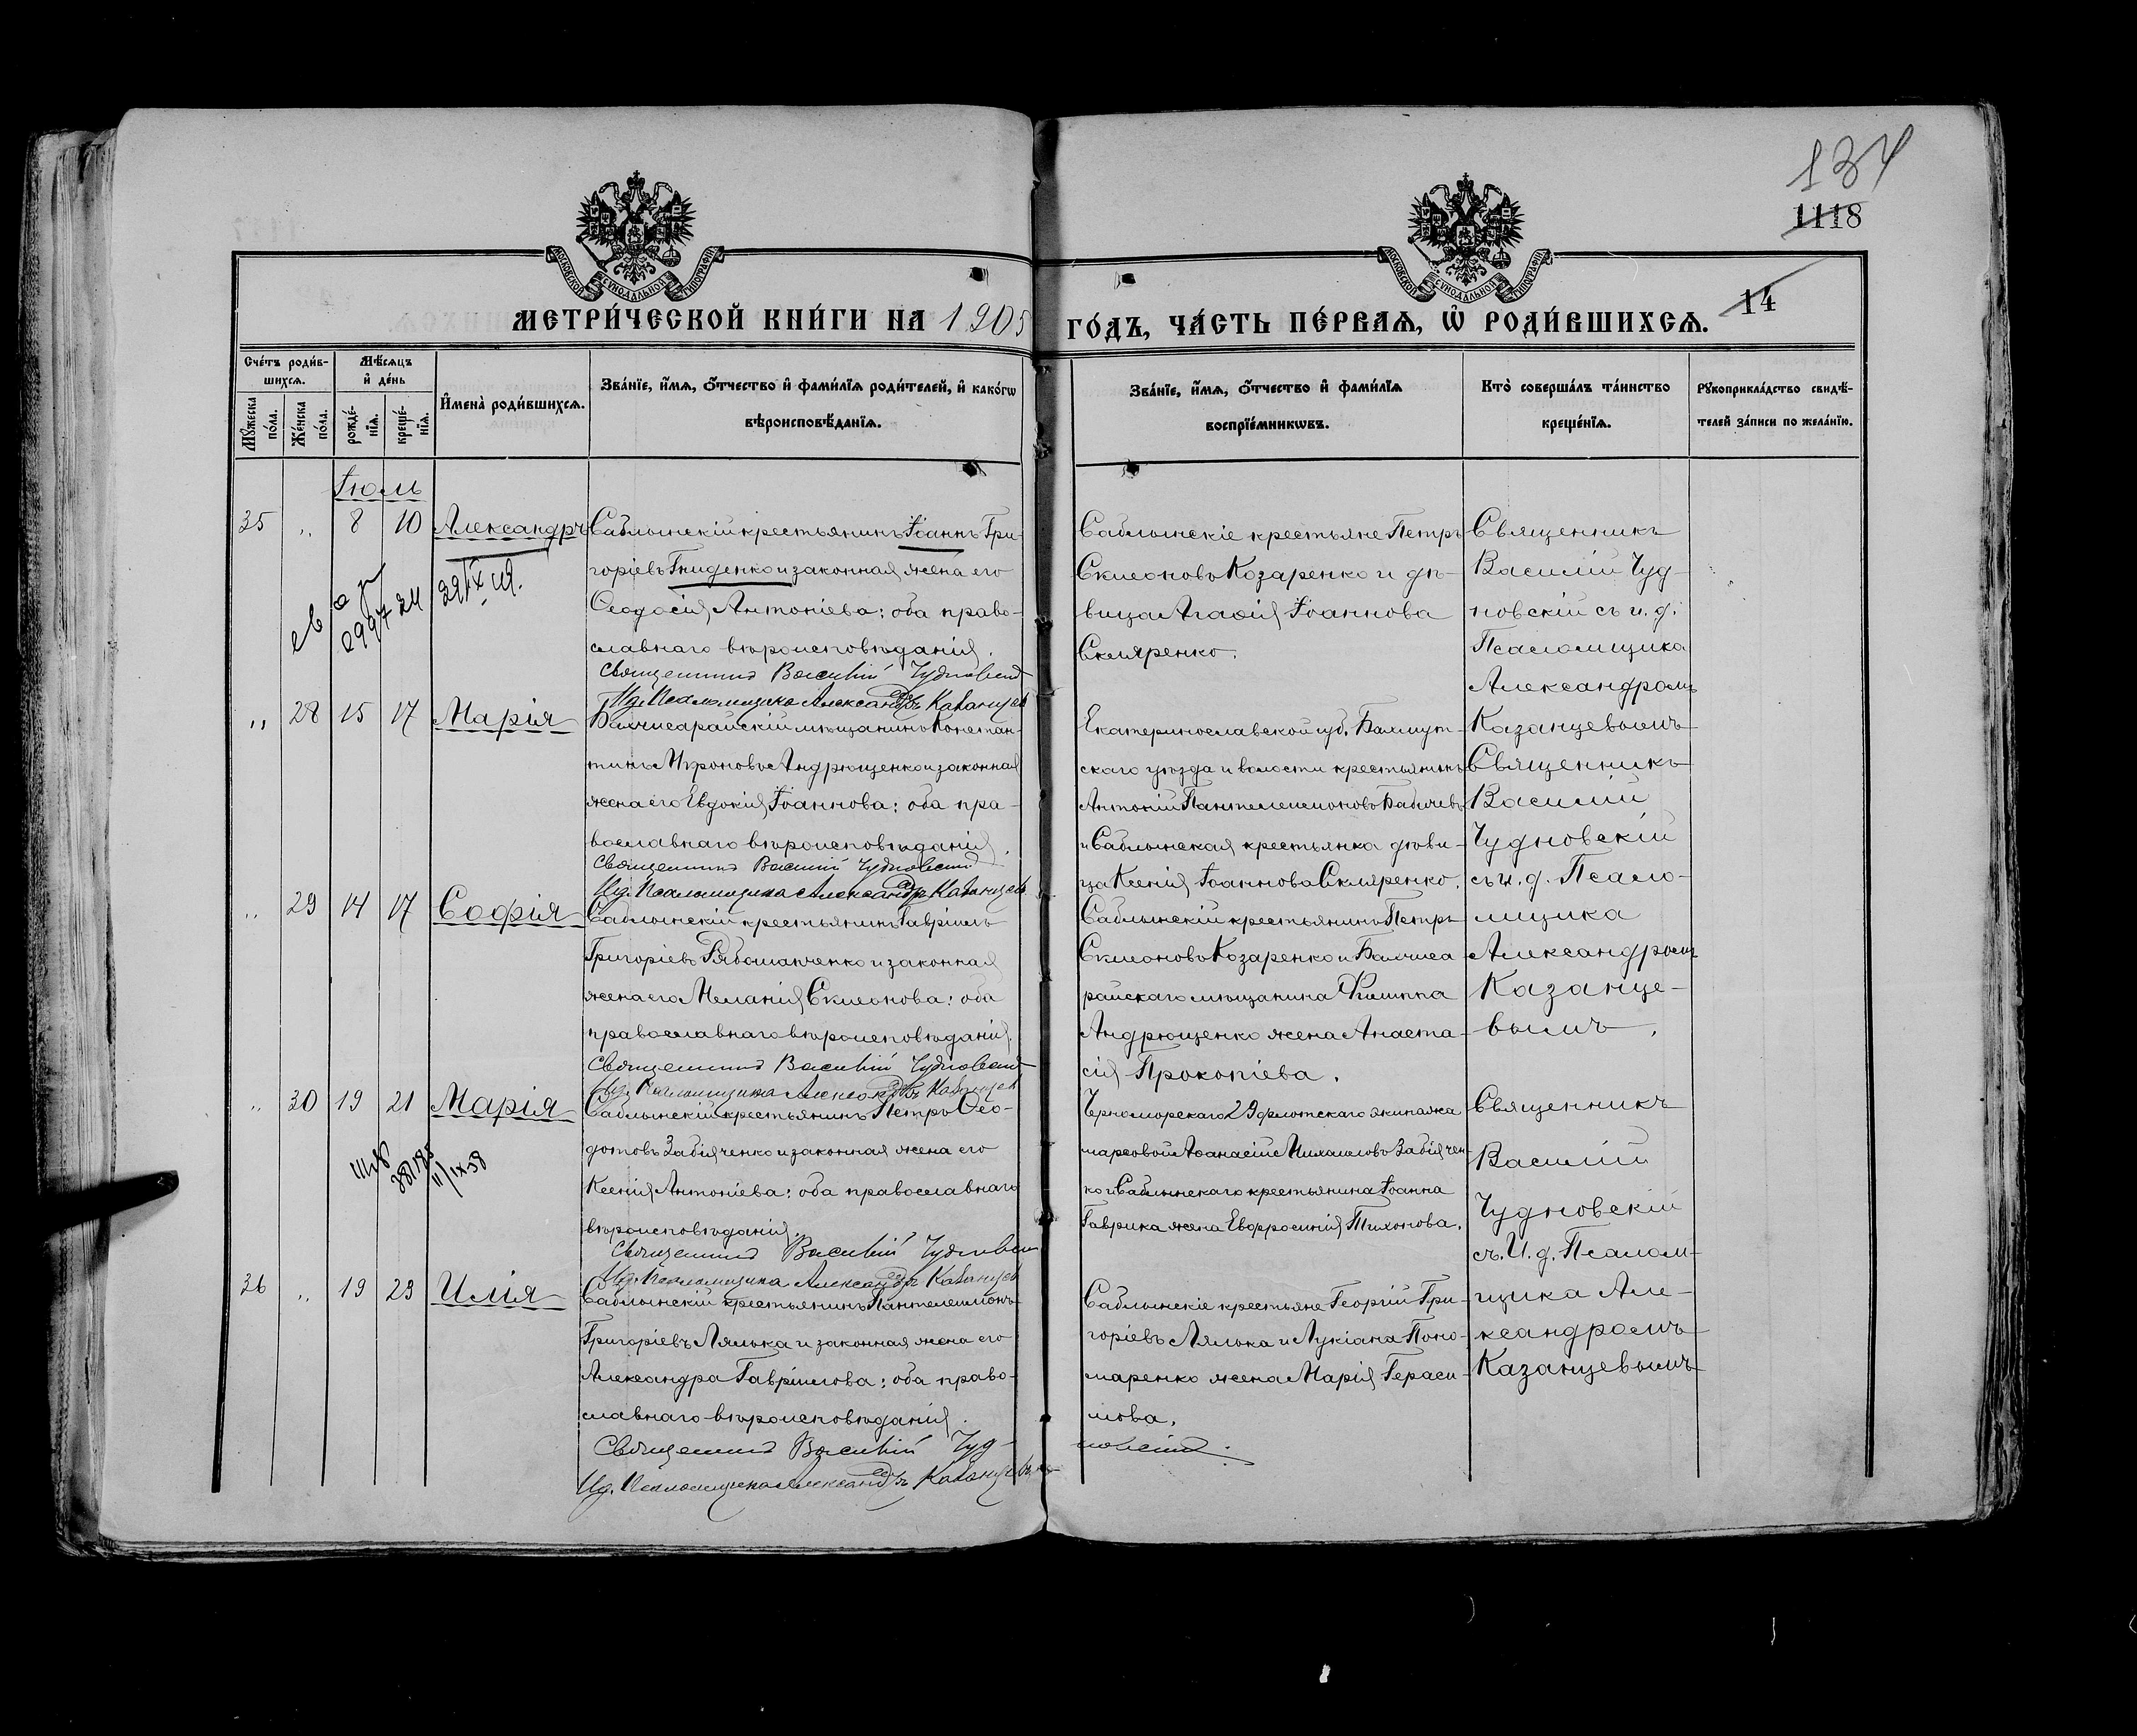 134
1118
14
МОСКОВСКОЙ СѴНОДАЛЬНОЙ ТИПОГРАФІИ
МОСКОВСКОЙ СѴНОДАЛЬНОЙ ТИПОГРАФІИ
МЕТРИ́ЧЕСКОЙ КНИ́ГИ НА 1905
ГО́ДЪ, ЧА́СТЬ ПЕ́РВАѦ, Ѡ҆ РОДИ́ВШИХСѦ.
Сче́тъ роди́в-
шихсѧ.
Мꙋ́жеска по́ла.
Же́нска по́ла.
Мѣ́сѧцъ
и҆ де́нь
рожде́-
нїѧ.
креще́-
нїѧ.
И҆мена̀ роди́вшихсѧ.
Зва́нїе, и҆́мѧ, ѻ҆́тчество и҆ фами́лїѧ роди́телей, и҆ како́гѡ
вѣроисповѣ́данїѧ.
Зва́нїе, и҆́мѧ, ѻ҆́тчество и҆ фами́лїѧ
воспрїе́мникѡвъ.
Кто̀ соверша́лъ та́инство
креще́нїѧ.
Рꙋкоприкла́дство свидѣ́-
телей за́писи по жела́нїю.
Іюль
35 „ 8 10 Александръ
Саблынскій крестьянинъ Іоаннъ Гри-
горіевъ Гниденко и законная жена его
Ѳеодосія Антоніева: оба право-
славнаго вѣроисповѣданія.
Священникъ Василій Чудновскій
И.д. Псаломщика Александръ Казанцевъ
Саблынскіе крестьяне Петръ
Симеоновъ Козаренко и дѣ-
вица Агаѳія Іоаннова
Скляренко.
Священникъ
Василій Чуд-
новскій съ и. д.
Псаломщика
Александромъ
Казанцевымъ
„ 28 15 17 Марія
Бахчисарайскій мѣщанинъ Констан-
тинъ Мѵроновъ Андрющенко и законная
жена его Евдокія Іоаннова: оба пра-
вославнаго вѣроисповѣданія.
Священникъ Василій Чудновскій
И.д. Псаломщика Александръ Казанцевъ
Екатеринославской губ. Бахмут-
скаго уѣзда и волости крестьянинъ
Антоній Пантелеимоновъ Бабичевъ
и Саблынская крестьянка дѣви-
ца Ксенія Іоаннова Скляренко.
Священникъ
Василій
Чудновскій
съ и. д. Псало-
мщика
Александромъ
Казанце-
вымъ.
„ 29 14 17 Софія
Саблынскій крестьянинъ Гавріилъ
Григоріевъ Рябошапченко и законная
жена его Меланія Симеонова: оба
православнаго вѣроисповѣданія.
Священникъ Василій Чудновскій
И.д. Псаломщика Александръ Казанцевъ
Саблынскій крестьянинъ Петръ
Симеоновъ Козаренко и Бахчиса
райскаго мѣщанина Филиппа
Андрющенко жена Анаста-
сія Прокопіева.
„ 30 19 21 Марія
Саблынскій крестьянинъ Петръ Ѳео-
дотовъ Забіяченко и законная жена его
Ксенія Антоніева: оба православнаго
вѣроисповѣданія.
Священникъ Василій Чудновскій
И.д. Псаломщика Александръ Казанцевъ
Черноморскаго 29 флотскаго экипажа
марсовой Аѳанасій Михаиловъ Забіячен-
ко и Саблынскаго крестьянина Іоанна
Гаврика жена Евфросинія Тихонова.
Священникъ
Василій
Чудновскій
съ. И. д. Псалом-
щика Але-
ксандромъ
Казанцевымъ
36 „ 19 23 Илія
Саблынскій крестьянинъ Пантелеимонъ
Григоріевъ Лялька и законная жена его
Александра Гавріилова: оба право-
славнаго вѣроисповѣданія.
Священникъ Василій Чуд-
новскій.
И.д. Псаломщика Александръ Казанцевъ
Саблынскіе крестьяне Георгій Гри-
горіевъ Лялька и Лукіана Поно-
маренко жена Марія Гераси-
мова.